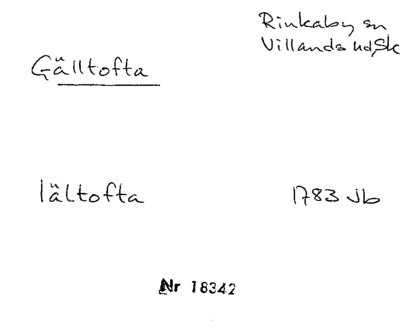 Rinkaby sn
Villands hd, Sk
Gälltofta
Iältofta 1783 Jb
Nr 18342